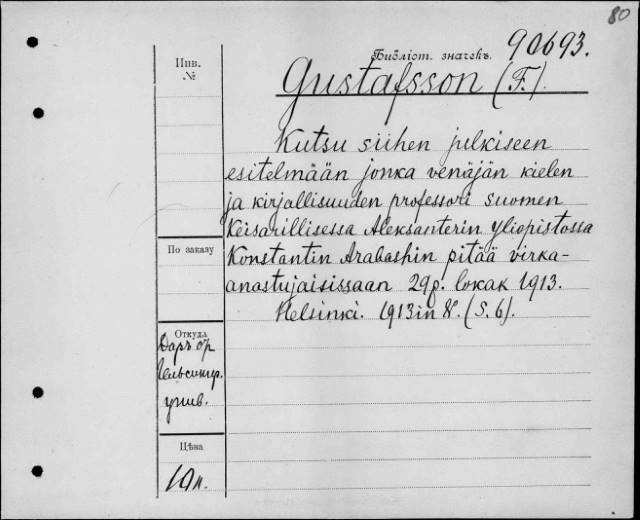 80
Библіот. значекъ. 90693.
Инв.
№
Gustafsson (F.).
Kutsu siihen julkiseen
esitelmään jonka venäjän kielen
ja kirjallisuuden professori suomen
Keisarillisessa Aleksanterin yliopistossa
Konstantin Arabashin pitää virka-
anastujaisissaan 29p. lokak 1913.
Helsinki. 1913 in 8°. (S. 6).
По заказу
Откуда
Даръ
Гельсингф.
унив.
Цѣна